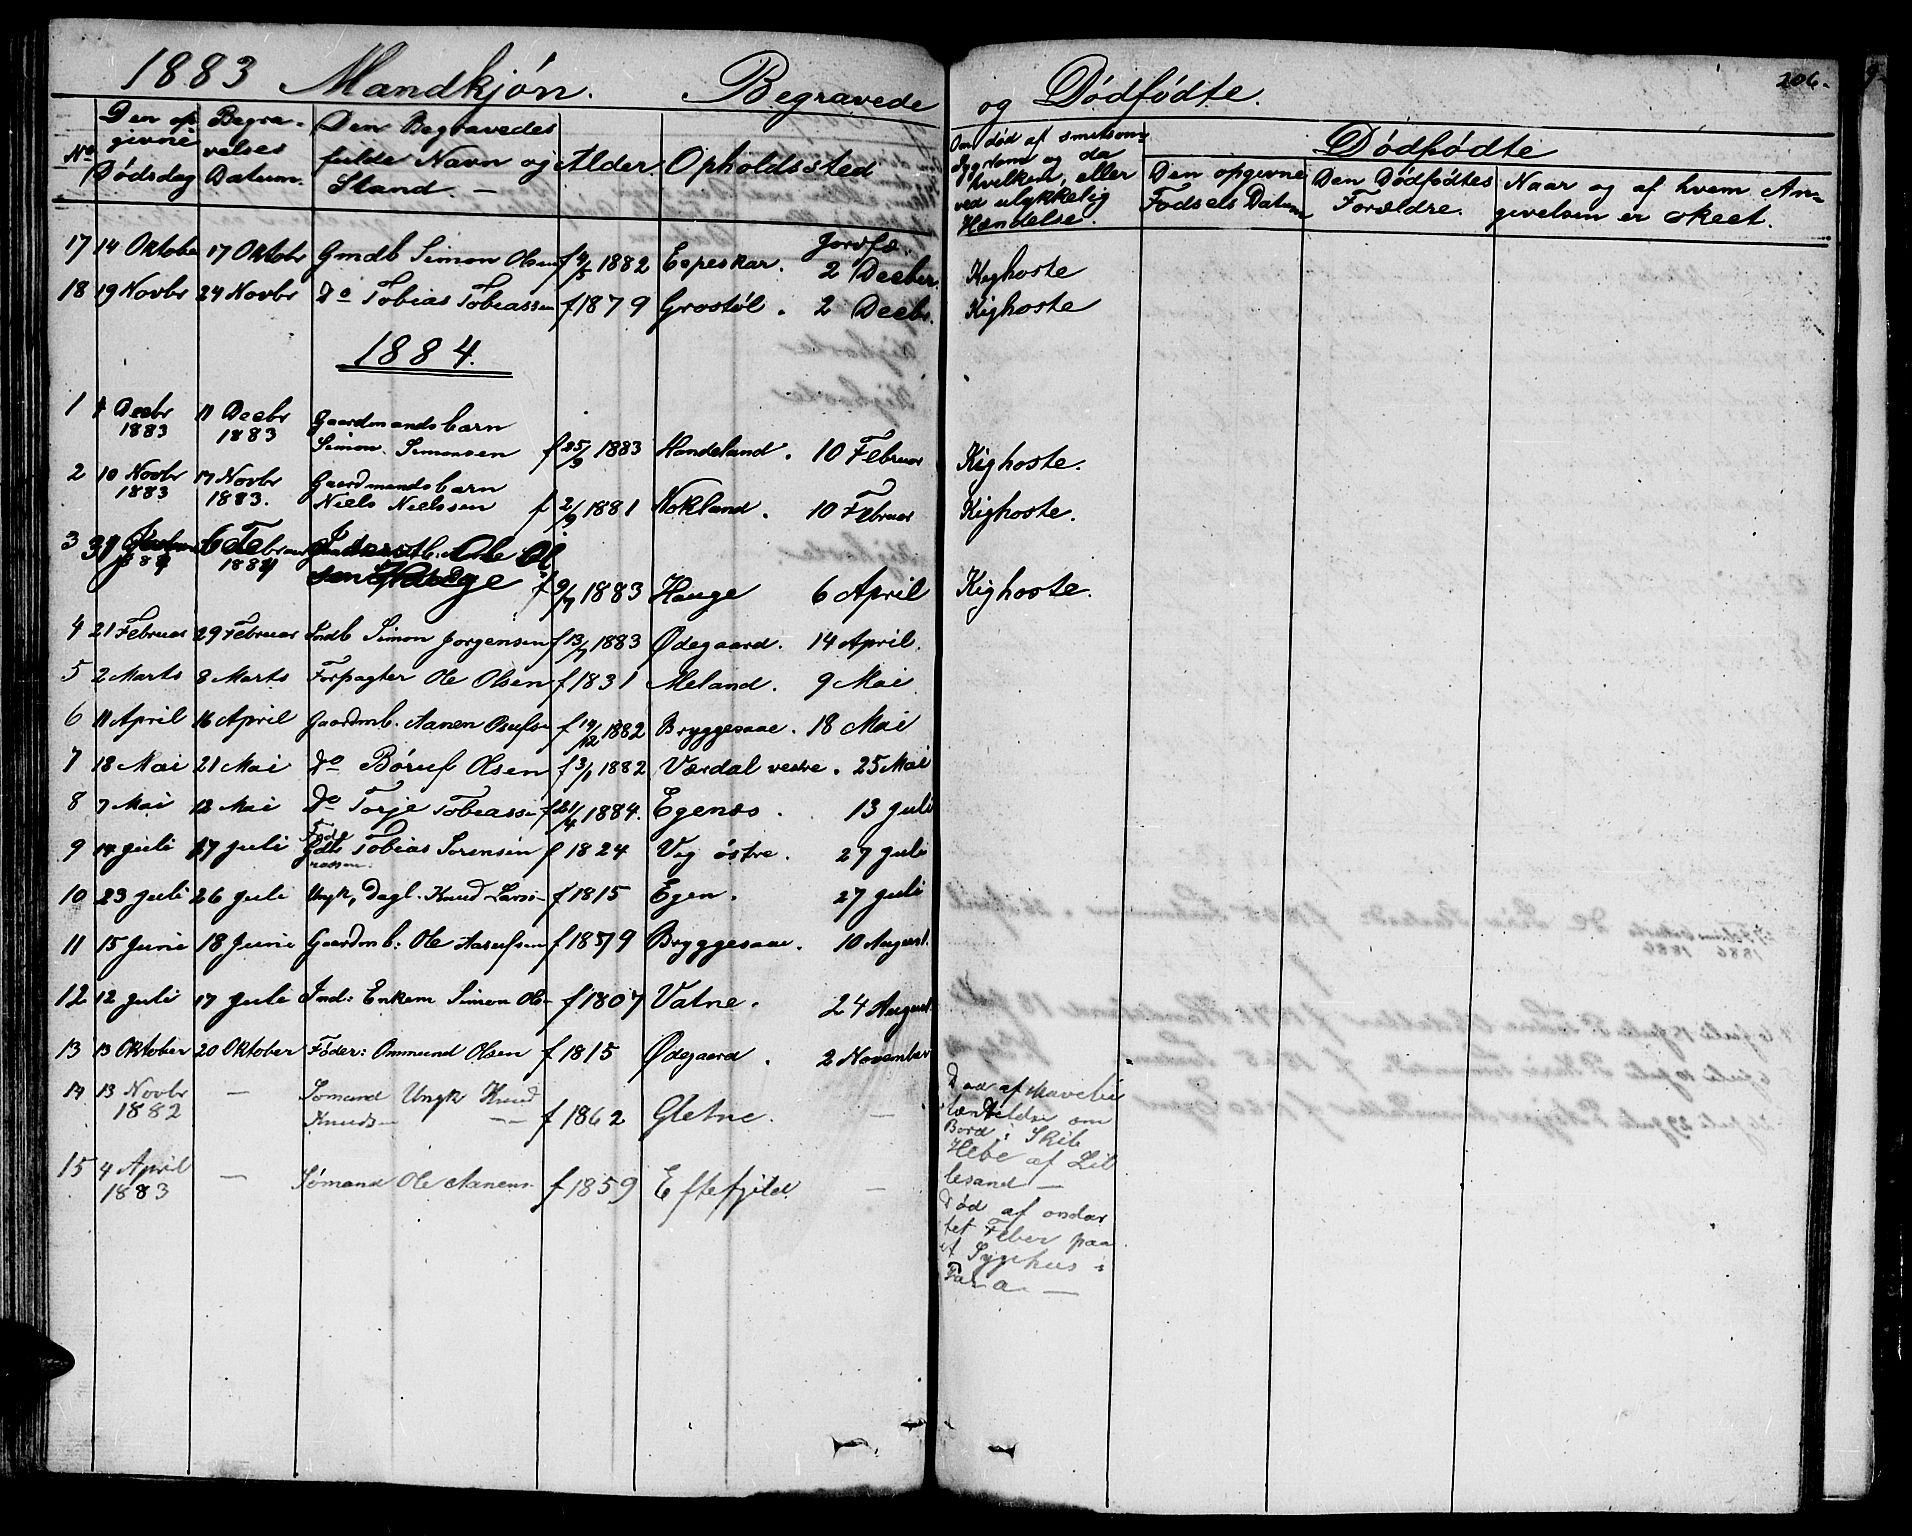 1883 Mandkjøn. Begravede og Dødfødte. 206.
No
Den op givne Dødsdag
Begra- velses Datum.
Den Begravedes fulde Navn og Stand. -
Alder.
Opholdssted
Om død af smitsom Sygdom og da hvilken, eller ved ulykkelig Hændelse.
Dødfødte
Den opgivne Fødsels Datum
Den Dødfødtes Forældre.
Naar og af hvem An- givelsen er skeet.
Jordfæ.
17 14 Oktober 17 Oktobr Gmdb Simon Olsen f 1882 Espeskar. 2 Decber. Kighoste
18 19 Novbr 24 Novbr Do Tobias Tobiassen f 1879 Grostøl. 2 Decbr. Kighoste
1884.
1 Decbr 1883 11 Decbr 1883 Gaardmandsbarn
Simon Simonsen f 25/9 1883 Handeland. 10 Februar Kighoste.
2 10 Novbr 1883 17 Novbr 1883. Gaardmandsbarn
Niels Nielssen f 2/9 1881 Nokland. 10 Februar Kighoste.
3 6 Februar 1884 Ole Ol
sen Hauge f 9/7 1883 Hauge 6 April Kighoste.
4 21 Februar 29 Februar Indb Simon Jørgensen f 13/7 1883 Ødegaard. 14 April.
5 2 Marts 8 Marts Forpagter Ole Olsen f 1831 Meland. 9 Mai
6 11 April 16 April Gaardmb. Aanen Osufsen f 19/12 1882 Bryggesaae. 18 Mai
7 18 Mai 21 Mai Do Børuf Olsen f 3/1 1882 Værdal vestre. 25 Mai
8 7 Mai 12 Mai Do Torje Tobiass f 21/4 1884. Egenæs. 13 Juli
9 14 Juli 17 Juli Tobias Sørensen f 1824 Veg østre. 27 Juli
10 23 Juli 26 Juli Ungk, Dagl. Knud Larss- f 1815 Egen. 27 Juli
11 15 Juni 18 Juni Gaardmb: Ole Aasufsen f 1879 Bryggesaae. 10 August.
12 12 Juli 17 Juli Ind: Enkem Simon Ols- f 1807 Vatne. 24 August.
13 13 Oktober 20 Oktober Føder: Ommund Olsen f 1815 Ødegaard. 2 November
14 13 Novbr 1882 - Sømand Ungk Knud
Knuds- -- f 1862 Gletne. -
Død af Mavebe
tændelse om
Bord i Skib
Hebe af Lil
lesand -
15 4 April 1883 - Sømand Ole Aanens- f 1859 Eftefjeld. -
Død af ondar
tet Feber paa
et Sygehus i
Para -